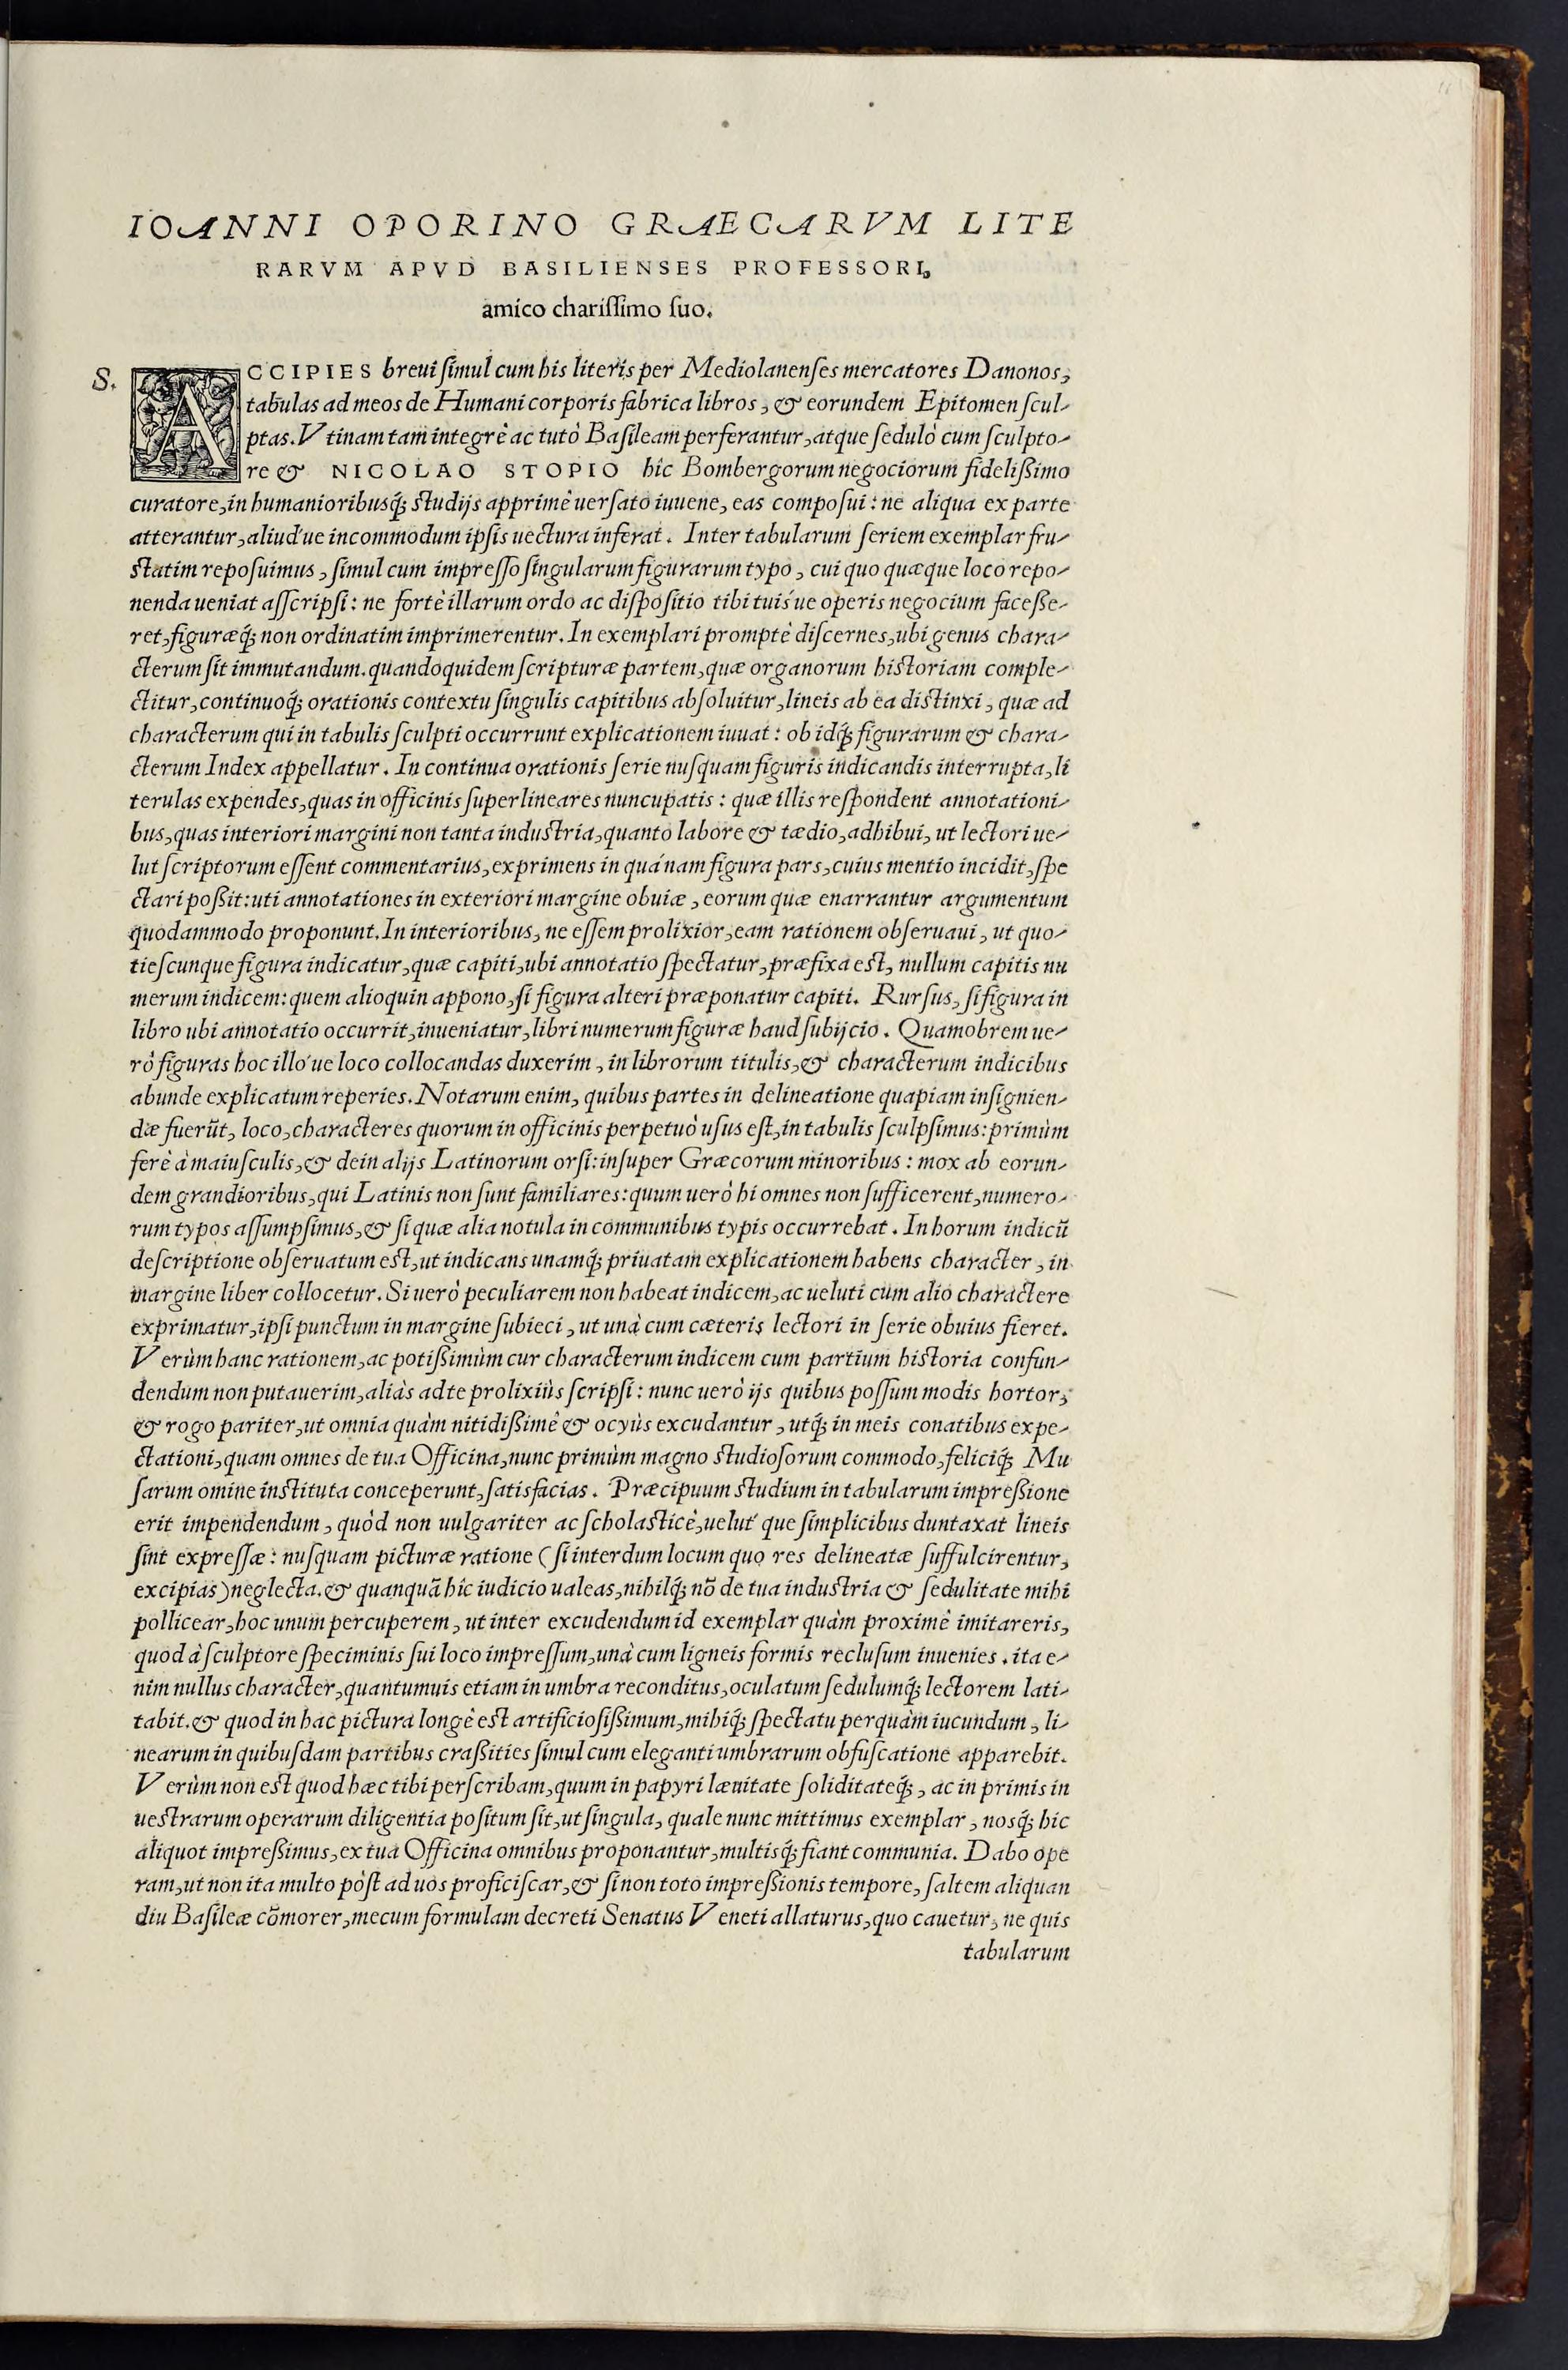 IOANNI OPORINO GRAECARVM LITE
RARVM APVD BASILIENSES PROFESSORI,
amico chariſſimo ſuo.
S. ACCIPIES breui ſimul cum his literis per Mediolanenſes mercatores Danonos,
tabulas ad meos de Humani corporis fabrica libros, & eorundem Epitomen ſcul-
ptas. Vtinam tam integrè ac tutò Baſileam perferantur, atque ſedulò cum ſculpto-
re & NICOLAO STOPIO hîc Bombergorum negociorum fideliſsimo
curatore, in humanioribusq́; ſtudijs apprimè uerſato iuuene, eas compoſui: ne aliqua ex parte
atterantur, aliud'ue incommodum ipſis uectura inferat. Inter tabularum ſeriem exemplar fru-
ſtatim repoſuimus, ſimul cum impreſſo ſingularum figurarum typo, cui quo quæque loco repo-
nenda ueniat aſſcripſi: ne fortè illarum ordo ac diſpoſitio tibi tuis'ue operis negocium faceſſe-
ret, figuræq́; non ordinatim imprimerentur. In exemplari promptè diſcernes, ubi genus chara-
cterum ſit immutandum. quandoquidem ſcripturæ partem, quæ organorum hiſtoriam comple-
ctitur, continuoq́; orationis contextu ſingulis capitibus abſoluitur, lineis ab ea diſtinxi, quæ ad
characterum qui in tabulis ſculpti occurrunt explicationem iuuat: ob idq́; figurarum & chara-
cterum Index appellatur. In continua orationis ſerie nuſquam figuris indicandis interrupta, li
terulas expendes, quas in officinis ſuperlineares nuncupatis: quæ illis reſpondent annotationi-
bus, quas interiori margini non tanta induſtria, quanto labore & tædio, adhibui, ut lectori ue-
lut ſcriptorum eſſent commentarius, exprimens in quánam figura pars, cuius mentio incidit, ſpe
ctari poſsit: uti annotationes in exteriori margine obuiæ, eorum quæ enarrantur argumentum
quodammodo proponunt. In interioribus, ne eſſem prolixior, eam rationem obſeruaui, ut quo-
tieſcunque figura indicatur, quæ capiti, ubi annotatio ſpectatur, præfixa eſt, nullum capitis nu
merum indicem: quem alioquin appono, ſi figura alteri præponatur capiti. Rurſus, ſi figura in
libro ubi annotatio occurrit, inueniatur, libri numerum figuræ haud ſubijcio. Quamobrem ue-
rò figuras hoc illó'ue loco collocandas duxerim, in librorum titulis, & characterum indicibus
abunde explicatum reperies. Notarum enim, quibus partes in delineatione quapiam inſignien-
dæ fuerūt, loco, characteres quorum in officinis perpetuò uſus eſt, in tabulis ſculpſimus: primùm
ferè à maiuſculis, & dein alijs Latinorum orſi: inſuper Græcorum minoribus: mox ab eorun-
dem grandioribus, qui Latinis non ſunt familiares: quum uerò hi omnes non ſufficerent, numero-
rum typos aſſumpſimus, & ſi quæ alia notula in communibus typis occurrebat. In horum indicū
deſcriptione obſeruatum eſt, ut indicans unamq́; priuatam explicationem habens character, in
margine liber collocetur. Si uerò peculiarem non habeat indicem, ac ueluti cum alio charactere
exprimatur, ipſi punctum in margine ſubieci, ut unà cum cæteris lectori in ſerie obuius fieret.
Verùm hanc rationem, ac potiſsimùm cur characterum indicem cum partium hiſtoria confun-
dendum non putauerim, aliàs ad te prolixiùs ſcripſi: nunc uerò ijs quibus poſſum modis hortor,
& rogo pariter, ut omnia quàm nitidiſsimè & ocyùs excudantur, utq́; in meis conatibus expe-
ctationi, quam omnes de tua Officina, nunc primùm magno ſtudioſorum commodo, feliciq́; Mu
ſarum omine inſtituta conceperunt, ſatisfacias. Præcipuum ſtudium in tabularum impreſsione
erit impendendum, quòd non uulgariter ac ſcholaſticè, uelut' que ſimplicibus duntaxat lineis
ſint expreſſæ: nuſquam picturæ ratione (ſi interdum locum quo res delineatæ ſuffulcirentur,
excipias) neglecta. & quanquā hîc iudicio ualeas, nihilq́; nō de tua induſtria & ſedulitate mihi
pollicear, hoc unum percuperem, ut inter excudendum id exemplar quàm proximè imitareris,
quod à ſculptore ſpeciminis ſui loco impreſſum, unà cum ligneis formis recluſum inuenies. ita e-
nim nullus character, quantumuis etiam in umbra reconditus, oculatum ſedulumq́; lectorem lati-
tabit. & quod in hac pictura longè eſt artificioſiſsimum, mihiq́; ſpectatu perquàm iucundum, li-
nearum in quibuſdam partibus craſsities ſimul cum eleganti umbrarum obfuſcatione apparebit.
Verùm non eſt quod hæc tibi perſcribam, quum in papyri læuitate ſoliditateq́;, ac in primis in
ueſtrarum operarum diligentia poſitum ſit, ut ſingula, quale nunc mittimus exemplar, nosq́; hîc
aliquot impreſsimus, ex tua Officina omnibus proponantur, multisq́; fiant communia. Dabo ope
ram, ut non ita multo pòſt ad uos proficiſcar, & ſi non toto impreſsionis tempore, ſaltem aliquan
diu Baſileæ cōmorer, mecum formulam decreti Senatus Veneti allaturus, quo cauetur, ne quis
tabularum